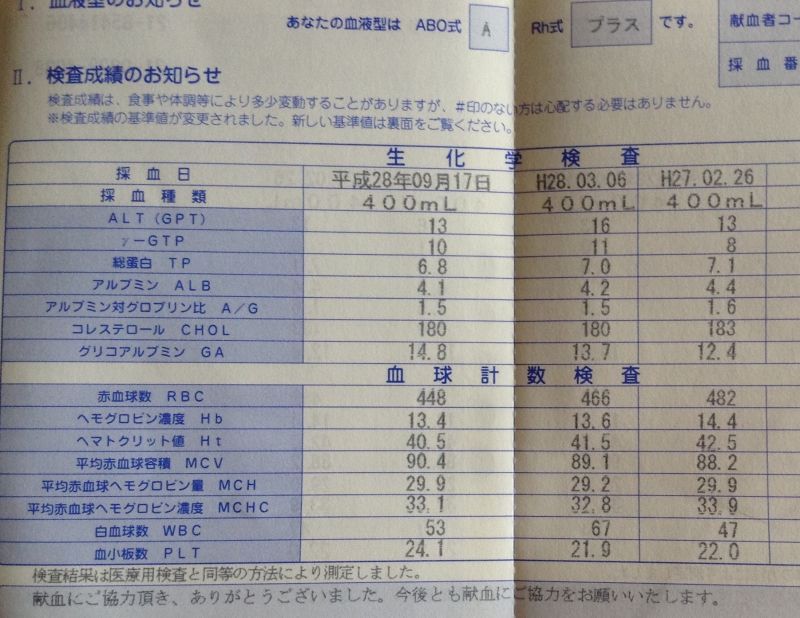 Ⅰ. 血液型のお知らせ
あなたの血液型は ABO式 A Rh式 プラス です。 献血者コー
採 血 番
Ⅱ. 検査成績のお知らせ
検査成績は、食事や体調等により多少変動することがありますが、#印のない方は心配する必要はありません。
※検査成績の基準値が変更されました。新しい基準値は裏面をご覧ください。
生 化 学 検 査
採 血 日 平成28年09月17日 H28.03.06 H27.02.26
採 血 種 類 400mL 400mL 400mL
ALT(GPT) 13 16 13
γ-GTP 10 11 8
総蛋白 TP 6.8 7.0 7.1
アルブミン ALB 4.1 4.2 4.4
アルブミン対グロブリン比 A/G 1.5 1.5 1.6
コレステロール CHOL 180 180 183
グリコアルブミン GA 14.8 13.7 12.4
血 球 計 数 検 査
赤血球数 RBC 448 466 482
ヘモグロビン濃度 Hb 13.4 13.6 14.4
ヘマトクリット値 Ht 40.5 41.5 42.5
平均赤血球容積 MCV 90.4 89.1 88.2
平均赤血球ヘモグロビン量 MCH 29.9 29.2 29.9
平均赤血球ヘモグロビン濃度 MCHC 33.1 32.8 33.9
白血球数 WBC 53 67 47
血小板数 PLT 24.1 21.9 22.0
検査結果は医療用検査と同等の方法により測定しました。
献血にご協力頂き、ありがとうございました。今後とも献血にご協力をお願いいたします。